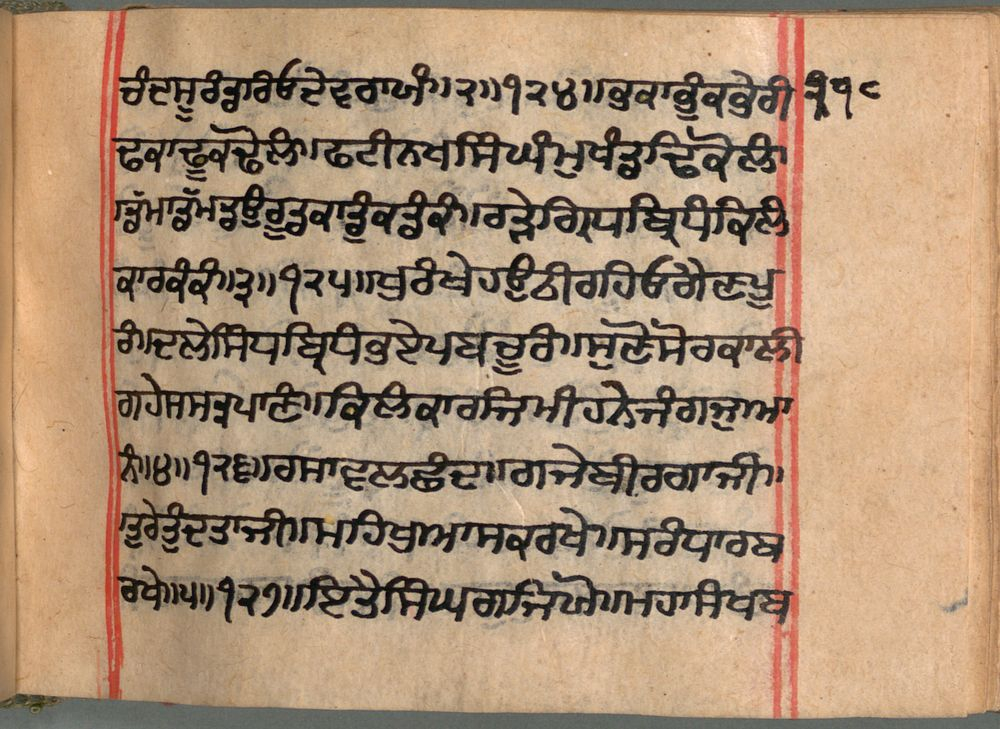 ਚੰਦਸੂਰੰਡਾਰਿਓਦੇਵਰਾਯੰ॥੨॥੧੨੪॥ਭੁਕਾਭੁੰਕਭੇਰੀ ੧੧੮
ਢਕਾਢੂਕਢੋਲੰ॥ਫਟੀਨਖਸਿੰਘੰਮੁਖੰਡਢਿਕੋਲੰ
॥ਡੁੱਮਾਡੁੱਮਡਉਰੂਡੁਕਾਡੁੰਕਡੰਕੰ॥ਰੜੇਗ੍ਰਿਧਬ੍ਰਿਧੰਕਿਲੰ
ਕਾਰਕੰਕੰ॥੩॥੧੨੫॥ਖੁਰੰਖੇਹਉਠੀਰਹਿਓਗੈਣਪੂ
ਰੰ॥ਦਲੇਸਿੰਧਬ੍ਰਿਧੰਭਏਪਬਚੂਰੰ॥ਸੁੱਣੋਸੋਰਕਾਲੀ
ਗਹੇਸਸਤ੍ਰਪਾਣੰ॥ਕਿਲੰਕਾਰਜਿਮੀਹਨੇਜੰਗਜੁਆ
ਨੰ॥੪॥੧੨੬॥ਰਸਾਵਲਛੰਦ॥ਗਜੇਬੀਰਗਾਜੀ॥
ਤੁਰੇਤੁੰਦਤਾਜੀ॥ਮਹਿਖੁਆਸਕਰਖੇ॥ਸਰੰਧਾਰਬ
ਰਖੇ॥੫॥੧੨੭॥ਇਤੈਸਿੰਘਗਜਿੱਯੋ॥ਮਹਾਸੰਖਬ